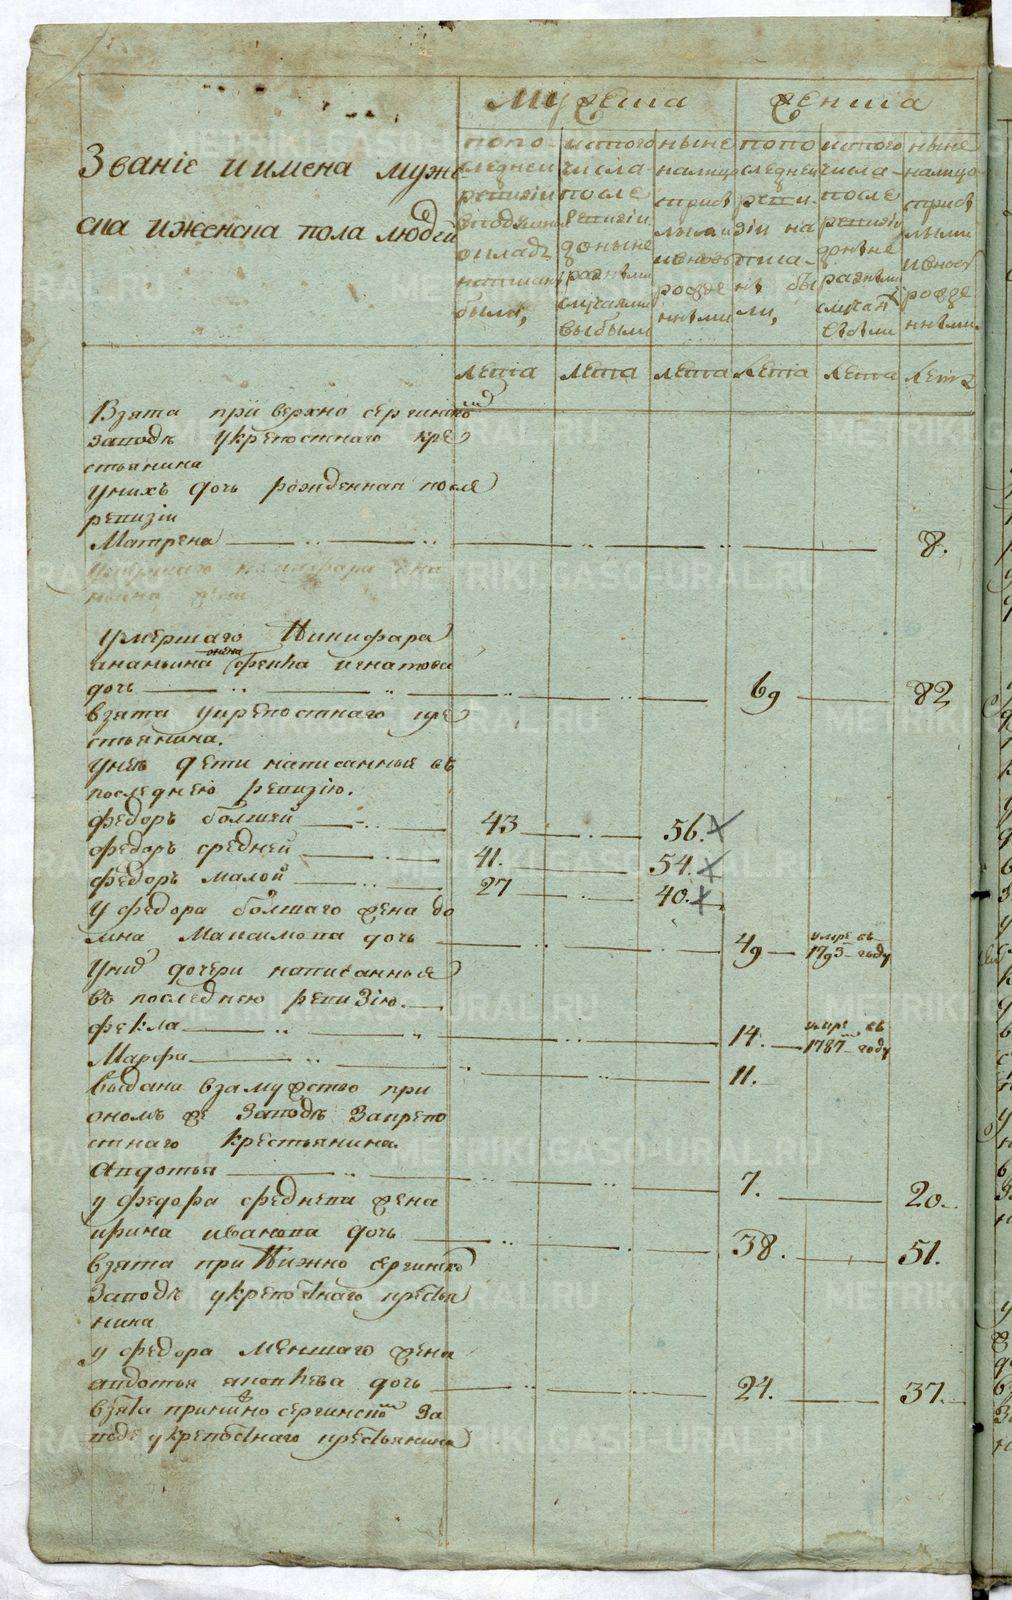 Званіе и имена муже
ска и женска пола людей
Мужеска
Женска
попо
следней
ревизіи
в подушной
окладъ
написаны
были,
ис того
числа
после
ревизіи
доныне
разными
случаями
выбыли
ныне
налицо
с приб
лыми
и вновь
рожде
нными
попо
следней
реви
зіи на
писа
ны бы
ли,
ис того
числа
после
ревизіи
доныне
разными
случая
выбыли
ныне
налицо
с приб
лыми
и вновь
рожде
нными.
лета лета лета лета лета лета
Взята при верхно сергинском
заводе у крепостнаго кре
стьянина
У них дочь рожденная после
ревизіи
Матрена 8.
умершаго Никифара
ананьина жена фекла игнатова
дочь 69 82
взята у крепостнаго кре
стьянина.
У нее дети написанные въ
последнею ревизію.
Федоръ болшей 43 56.
Федоръ средней 41. 54.
Федоръ малой 27 40.
У федора болшаго жена до
мна Максимова дочь 49 умре въ 1793 году
У них дочери написанные
въ последнею ревизію.
фекла 14. умре въ 1787 году
Марфа 11.
выдана в замужство при
оном же заводе за крепо
стнаго крестьянина.
Авдотья 7. 20.
у федора среднева жена
ирина иванова дочь 38. 51.
взята при Нижно сергинском
заводе у крепостнаго крестья
нина
у федора меншаго жена
авдотья яковлева дочь 24. 37.
взята при нижно сергинском за
воде у крепостнаго крестьянина
METRIKI.GASO-URAL.RU